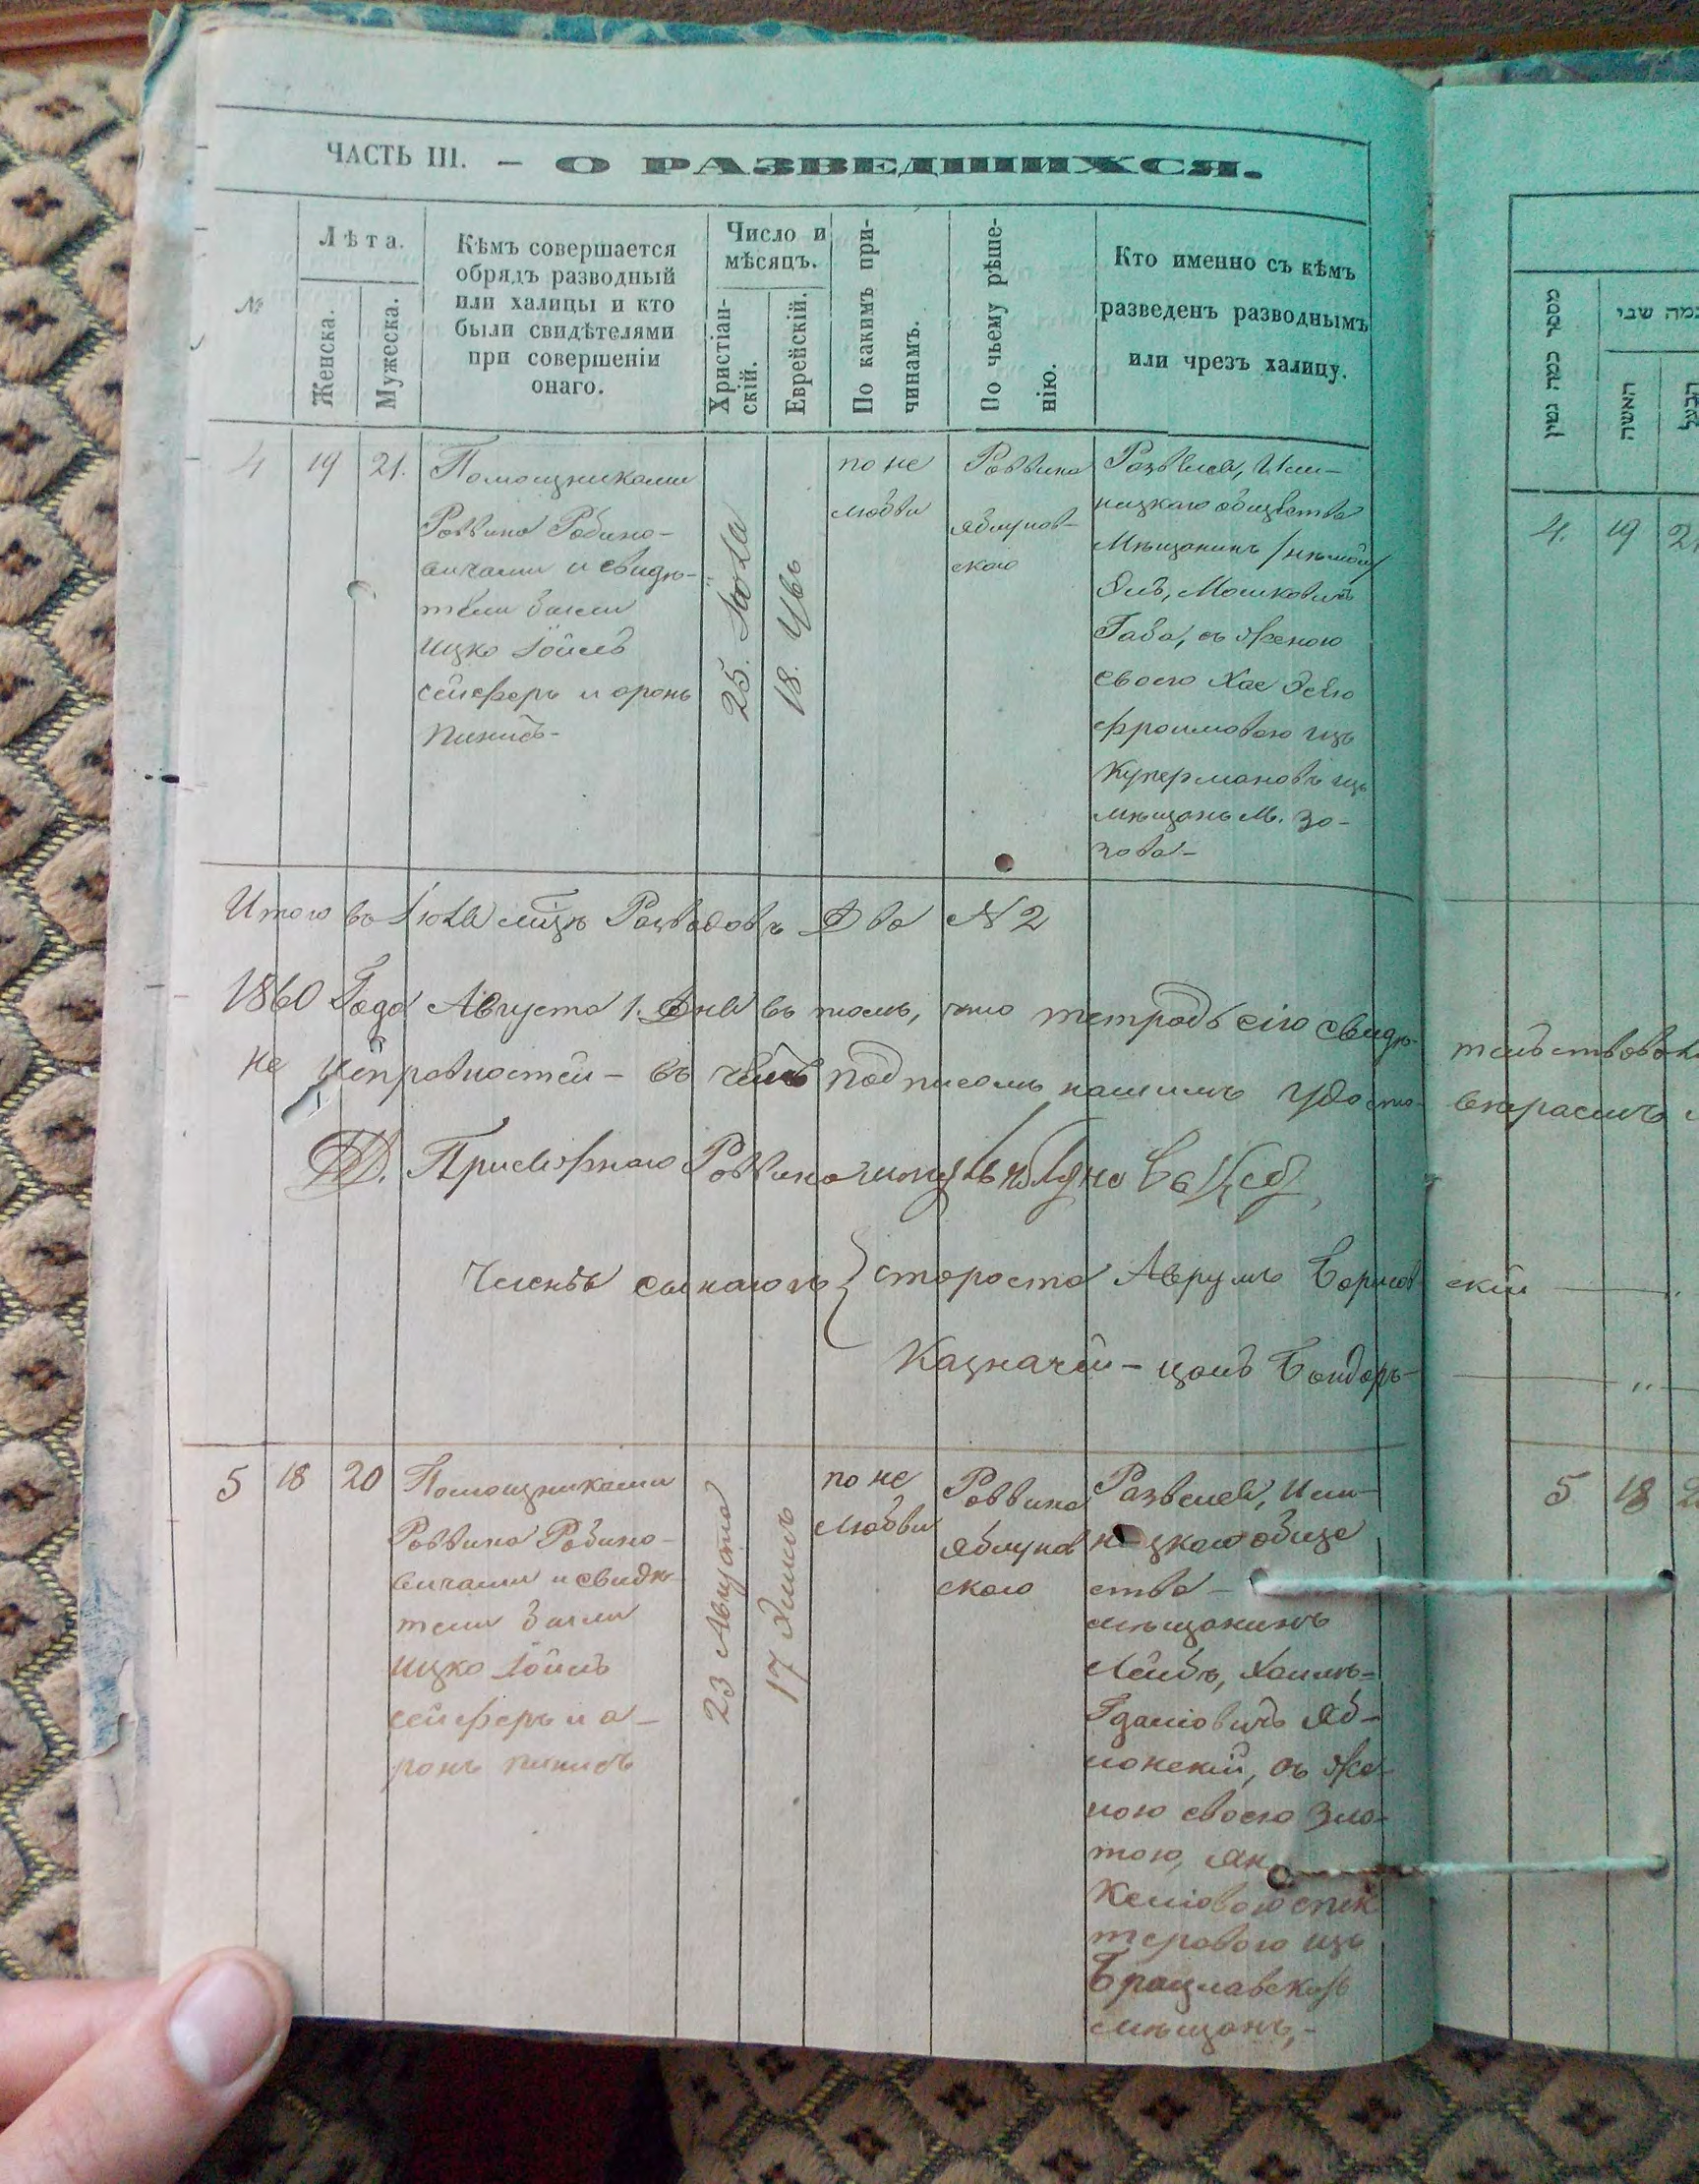 ЧАСТЬ III. – О РАЗВЕДШИХСЯ.
№
Лѣта.
Женска.
Мужеска.
Кѣмъ совершается
обрядъ разводный
или халицы и кто
были свидѣтелями
при совершеніи
онаго.
Число и
мѣсяцъ.
Христіан-
скій.
Еврейскій.
По какимъ при-
чинамъ.
По чьему рѣше-
нію.
Кто именно съ кѣмъ
разведенъ разводнымъ
или чрезъ халицу.
4
19
21.
Помощниками
Раввина Рабино-
вичами и свидѣ-
тели были
Ицко Іойль
сейферъ и аронъ
25. Іюля
18. Увъ
по не
любви
Раввина
яблунов-
скаго
Развелся, Или-
нецкаго общества
Мѣщанинъ /нѣмой/
Мошковичъ
Гава, съ женою
своею Хае
фроимовою изъ
Купермановъ изъ
мѣщанъ М. Зо-
зова-
Итого въ Іюлѣ мѣцѣ Разводовъ Два N 2
1860 Года Августа 1. Дня въ томъ, что тетрадь сію свидѣ-
не исправностей – въ чемъ подписомъ нашимъ удосто-
Присяжнаго Раввина
Члены староста Аврумъ
Казначей –
5
18
20
Помощниками
Раввина Рабино-
вичами и свидѣ-
тели были
Ицко Іойль
сейферъ и а-
ронъ
23 Августа
17
по не
любви
Раввина
яблунов
скаго
Развелся, Или-
нецкаго обще
ства –
мѣщанинъ
Лейбъ, Хаимъ-
Яб-
лонскій, съ же-
ною своею Зла-
тою, Ян
келіовою
теровою изъ
Брацлавскихъ
мѣщанъ,-
מספר כמה גטין
האשה
הבעל
4.
19
скій
5
18